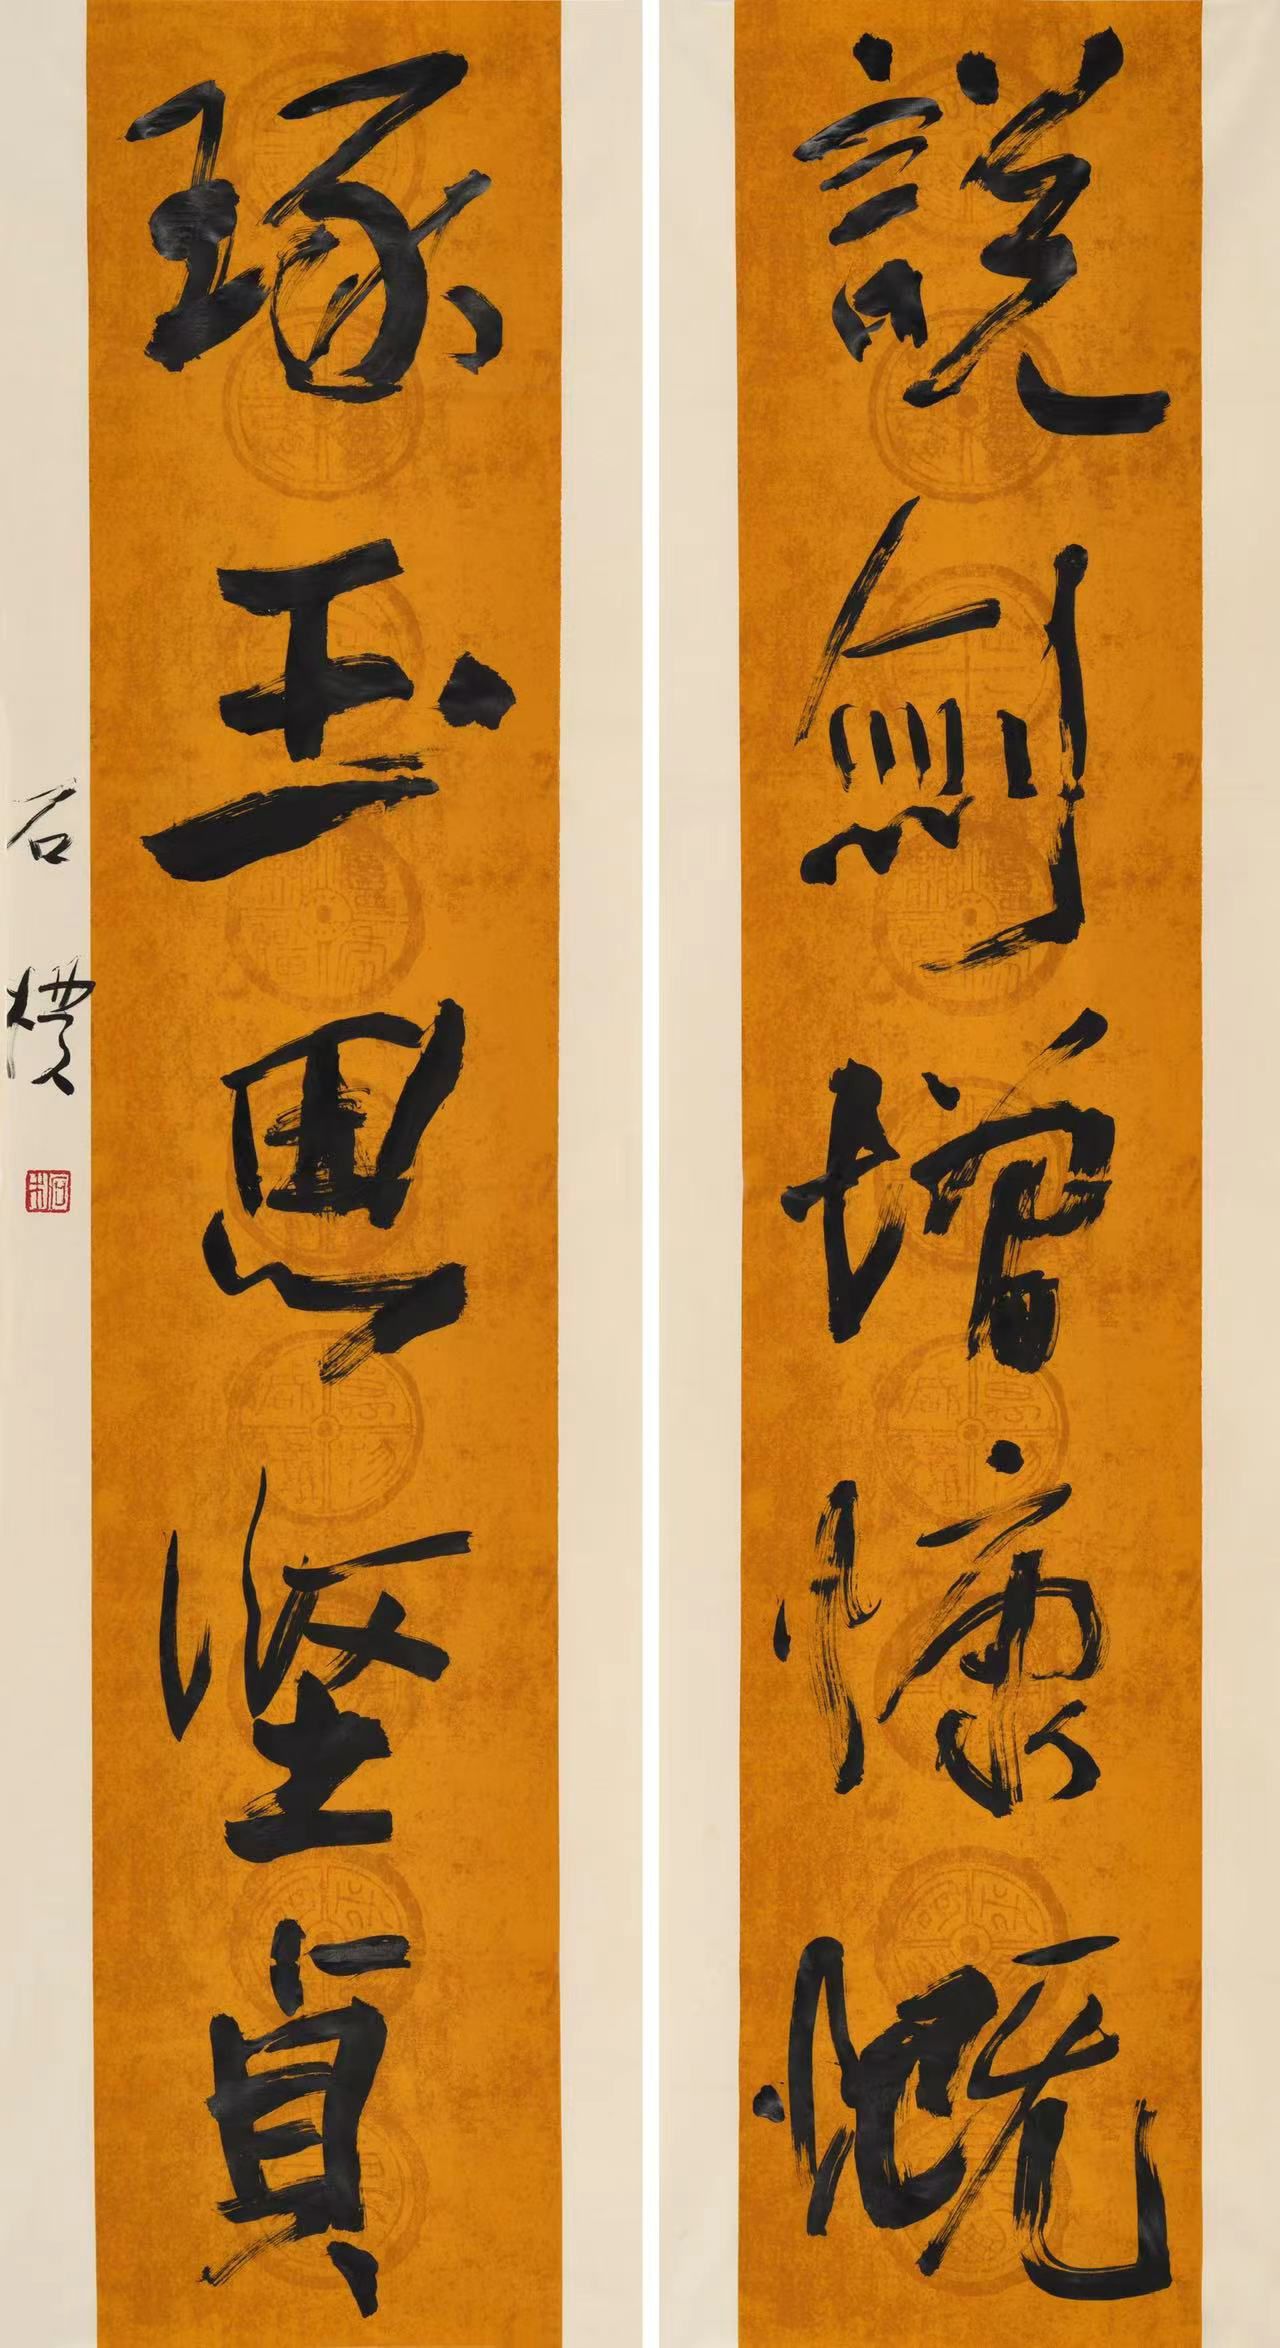 說劍增慷慨
琢玉思堅貞
石橫